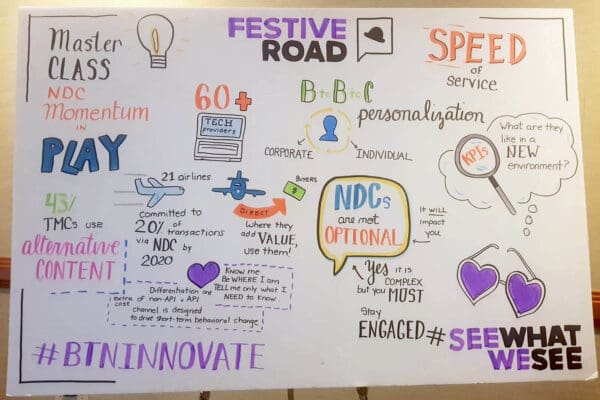 Master
CLASS
NDC
Momentum
IN
PLAY
FESTIVE
ROAD
SPEED
of
service
60+
TECH
providers
B to B to C
personalization
CORPORATE
INDIVIDUAL
KPIs
What are they
like in a
NEW
environment?
43%
TMCs USE
alternative
CONTENT
21 airlines
committed to
20% of
transactions
via NDC by
2020
DIRECT
BUYERS
$
Where they
add VALUE,
use them!
NDCs
are not
OPTIONAL
IT WILL
impact
you
Yes IT IS
COMPLEX
but you MUST
Stay
ENGAGED
Know me
Be WHERE I am
TELL me only what I
NEED to know
Differentiation and
extra of non-API v API
cost
channel is designed
to drive short-term behavioral change
#BTNINNOVATE
#SEEWHAT
WESEE